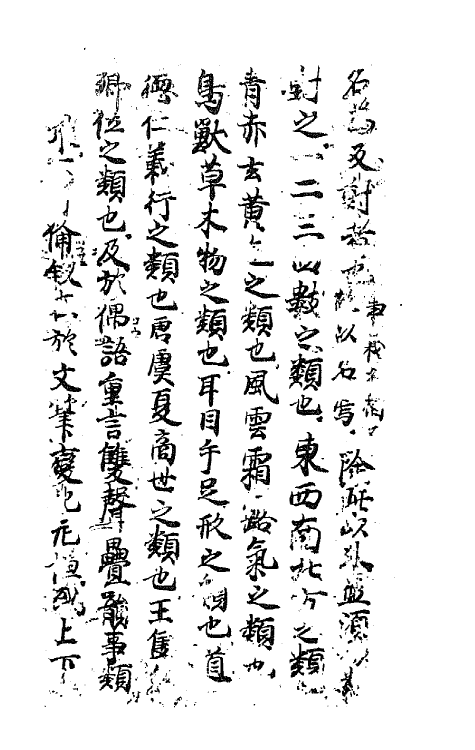 名為反對者也 事 以名焉 除此以外並須
對之一二三四數之類也東西南北方之類
青赤玄黃色之類也風雲霜露氣之類也
鳥獸草木物之類也耳目手足形之類也道
德仁義行之類也唐虞夏商世之類也王侯
卿位之類也及於偶語重言雙聲疊韻事類
甚眾不可備敘 於文筆變化無恒或上下